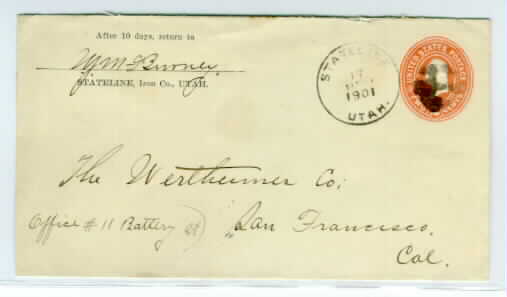 After 10 days, return to
STATELINE, Iron Co., UTAH.
STATELINE
17
1901
UTAH.
UNITED STATES POSTAGE
The Wertheimer Co;
Office #11 Battery St
San Francisco,
Cal.